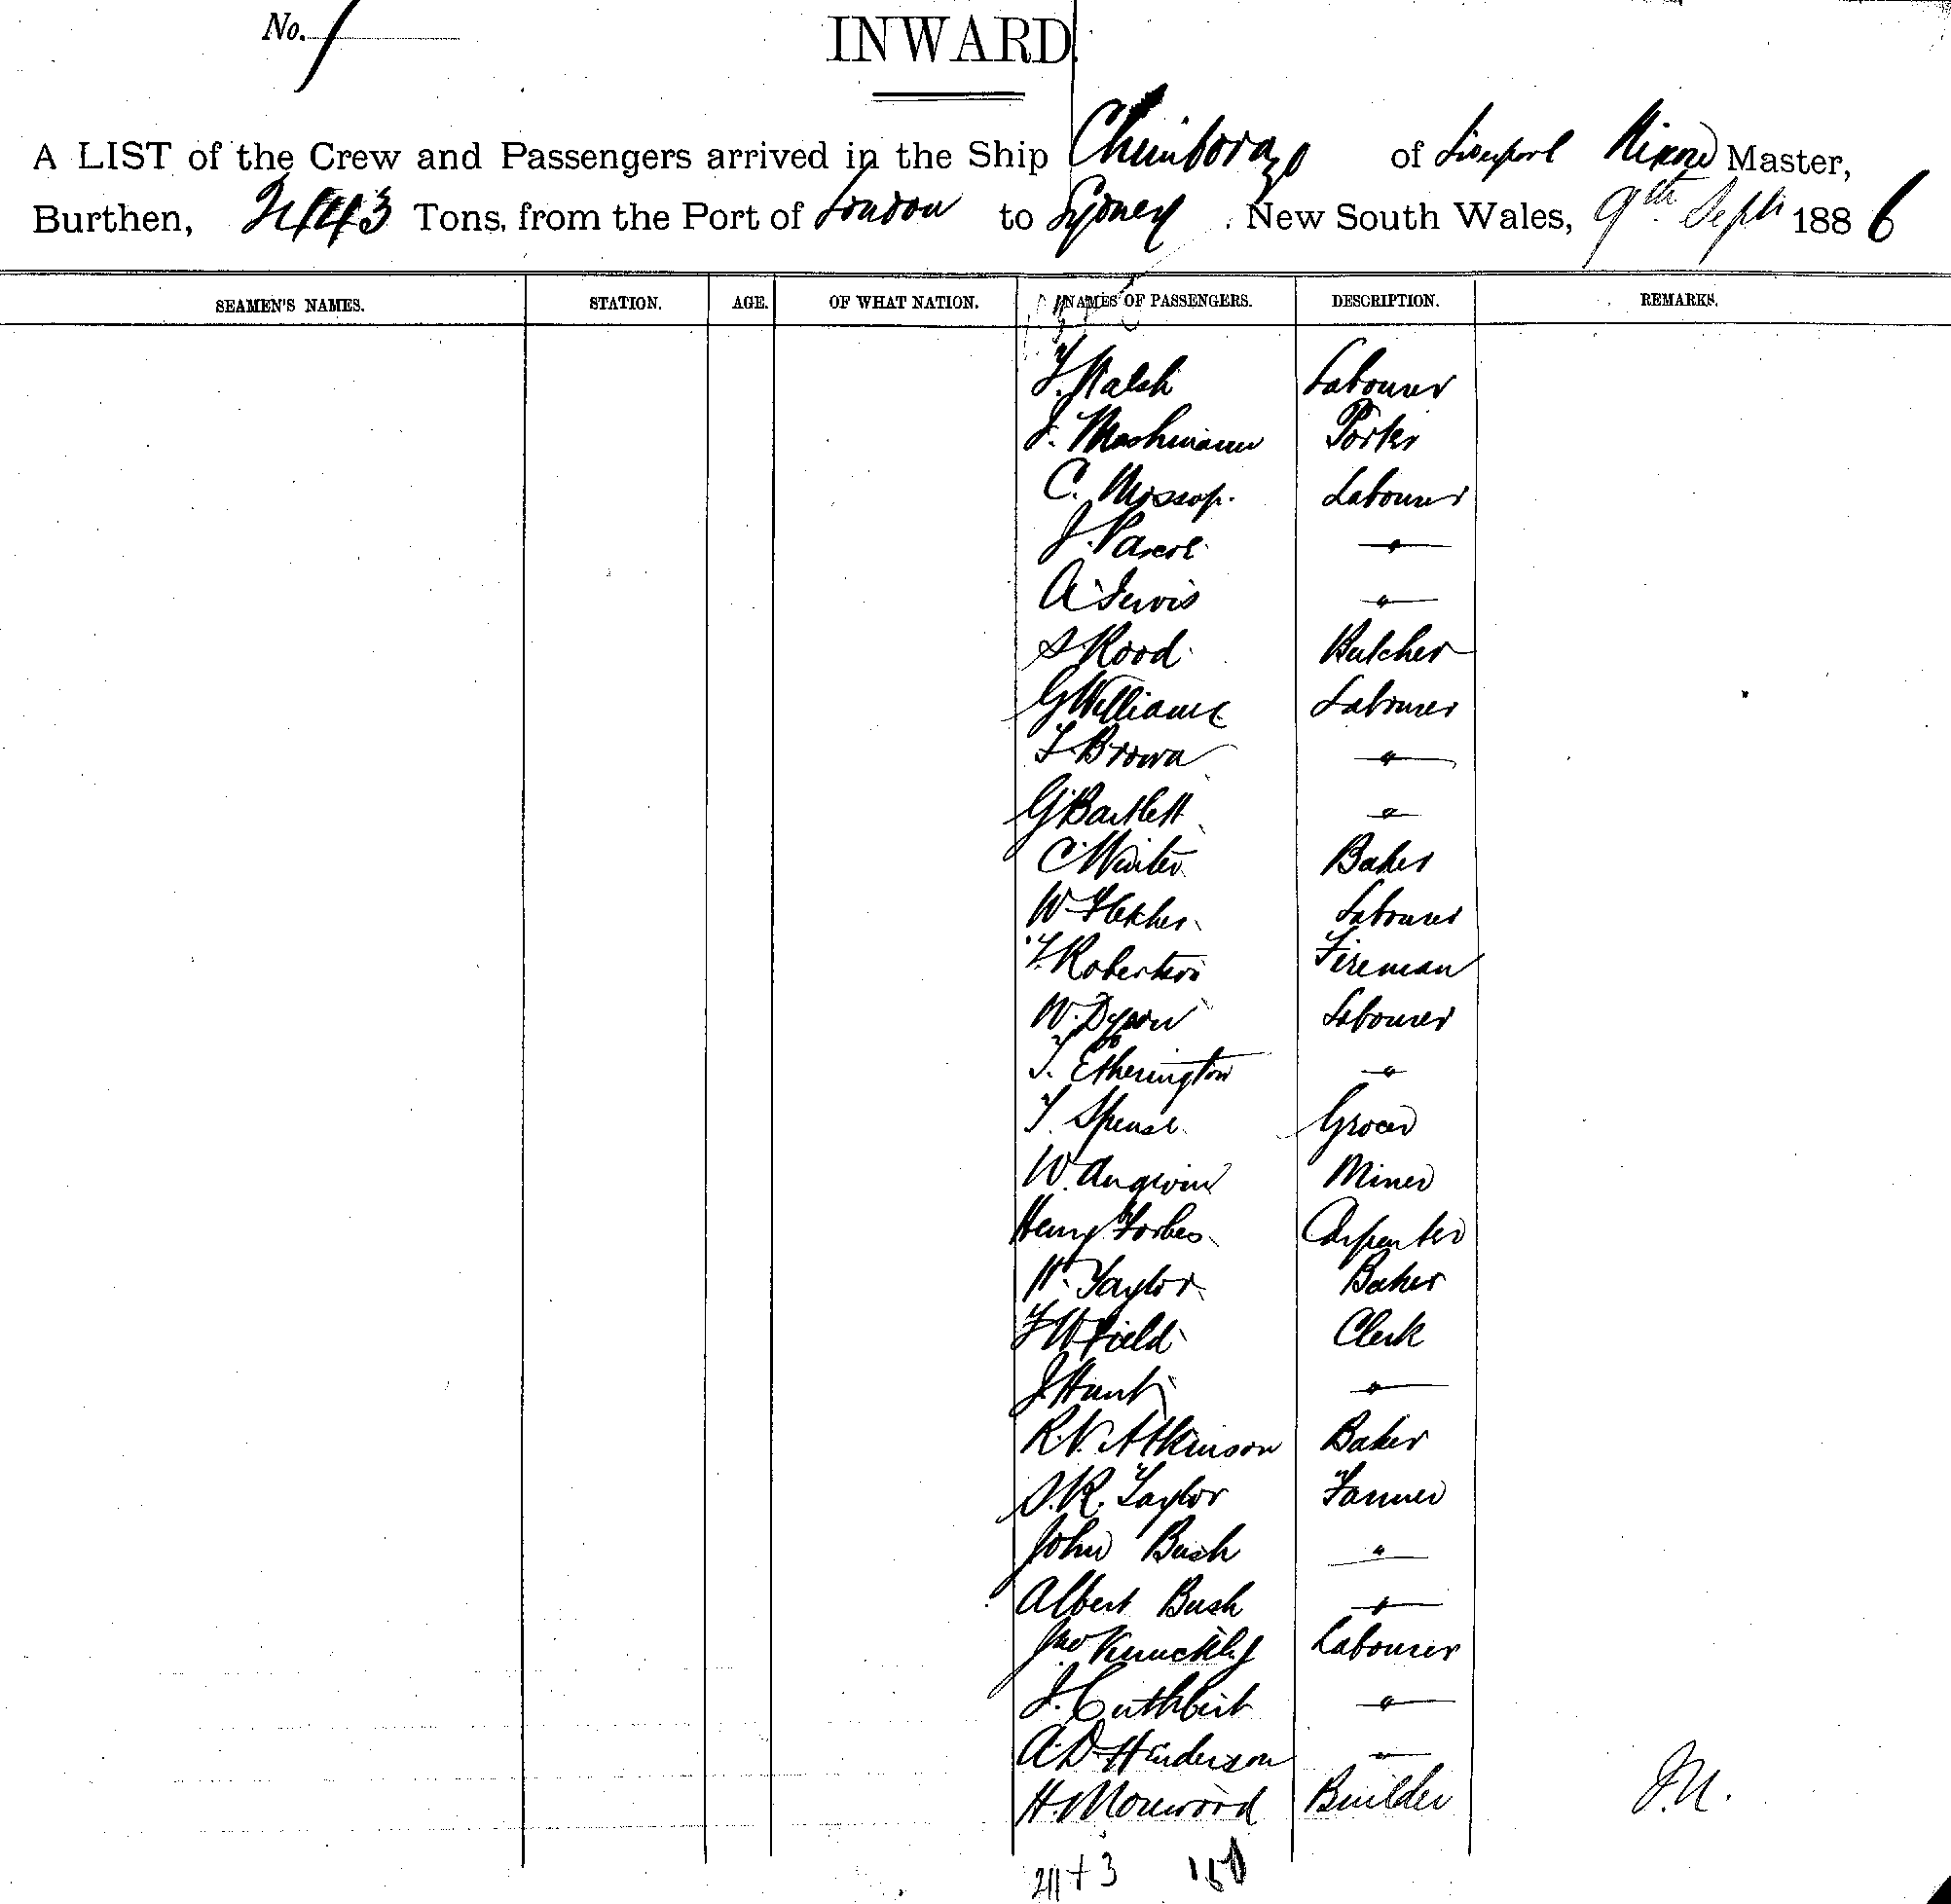 No. 1
INWARD.
A LIST of the Crew and Passengers arrived in the Ship Chimborazo of Liverpool Nixon Master,
Burthen, 2443 Tons, from the Port of London to Sydney, New South Wales, 9th Sept 1886
SEAMEN'S NAMES. STATION. AGE. OF WHAT NATION. NAMES OF PASSENGERS. DESCRIPTION. REMARKS.
Walsh Labourer
Porter
C. Mossop. Labourer
J. "
A "
S. Rood Butcher
G Williams Labourer
Brown "
G Bartlett "
C. Winter Baker
W. Fletcher Labourer
Robertson Fireman
W. Dyson Labourer
T. Etherington "
T. Spence Grocer
W. Angwin Miner
Henry Forbes Carpenter
Taylor Baker
F W Field Clerk
J. Hunt "
R.V. Atkinson Baker
S.R. Taylor Farmer
John Bush "
Albert Bush "
Jno Labourer
J. Cuthbert "
A.D. Henderson "
H. Builder
J.M.
+ 3